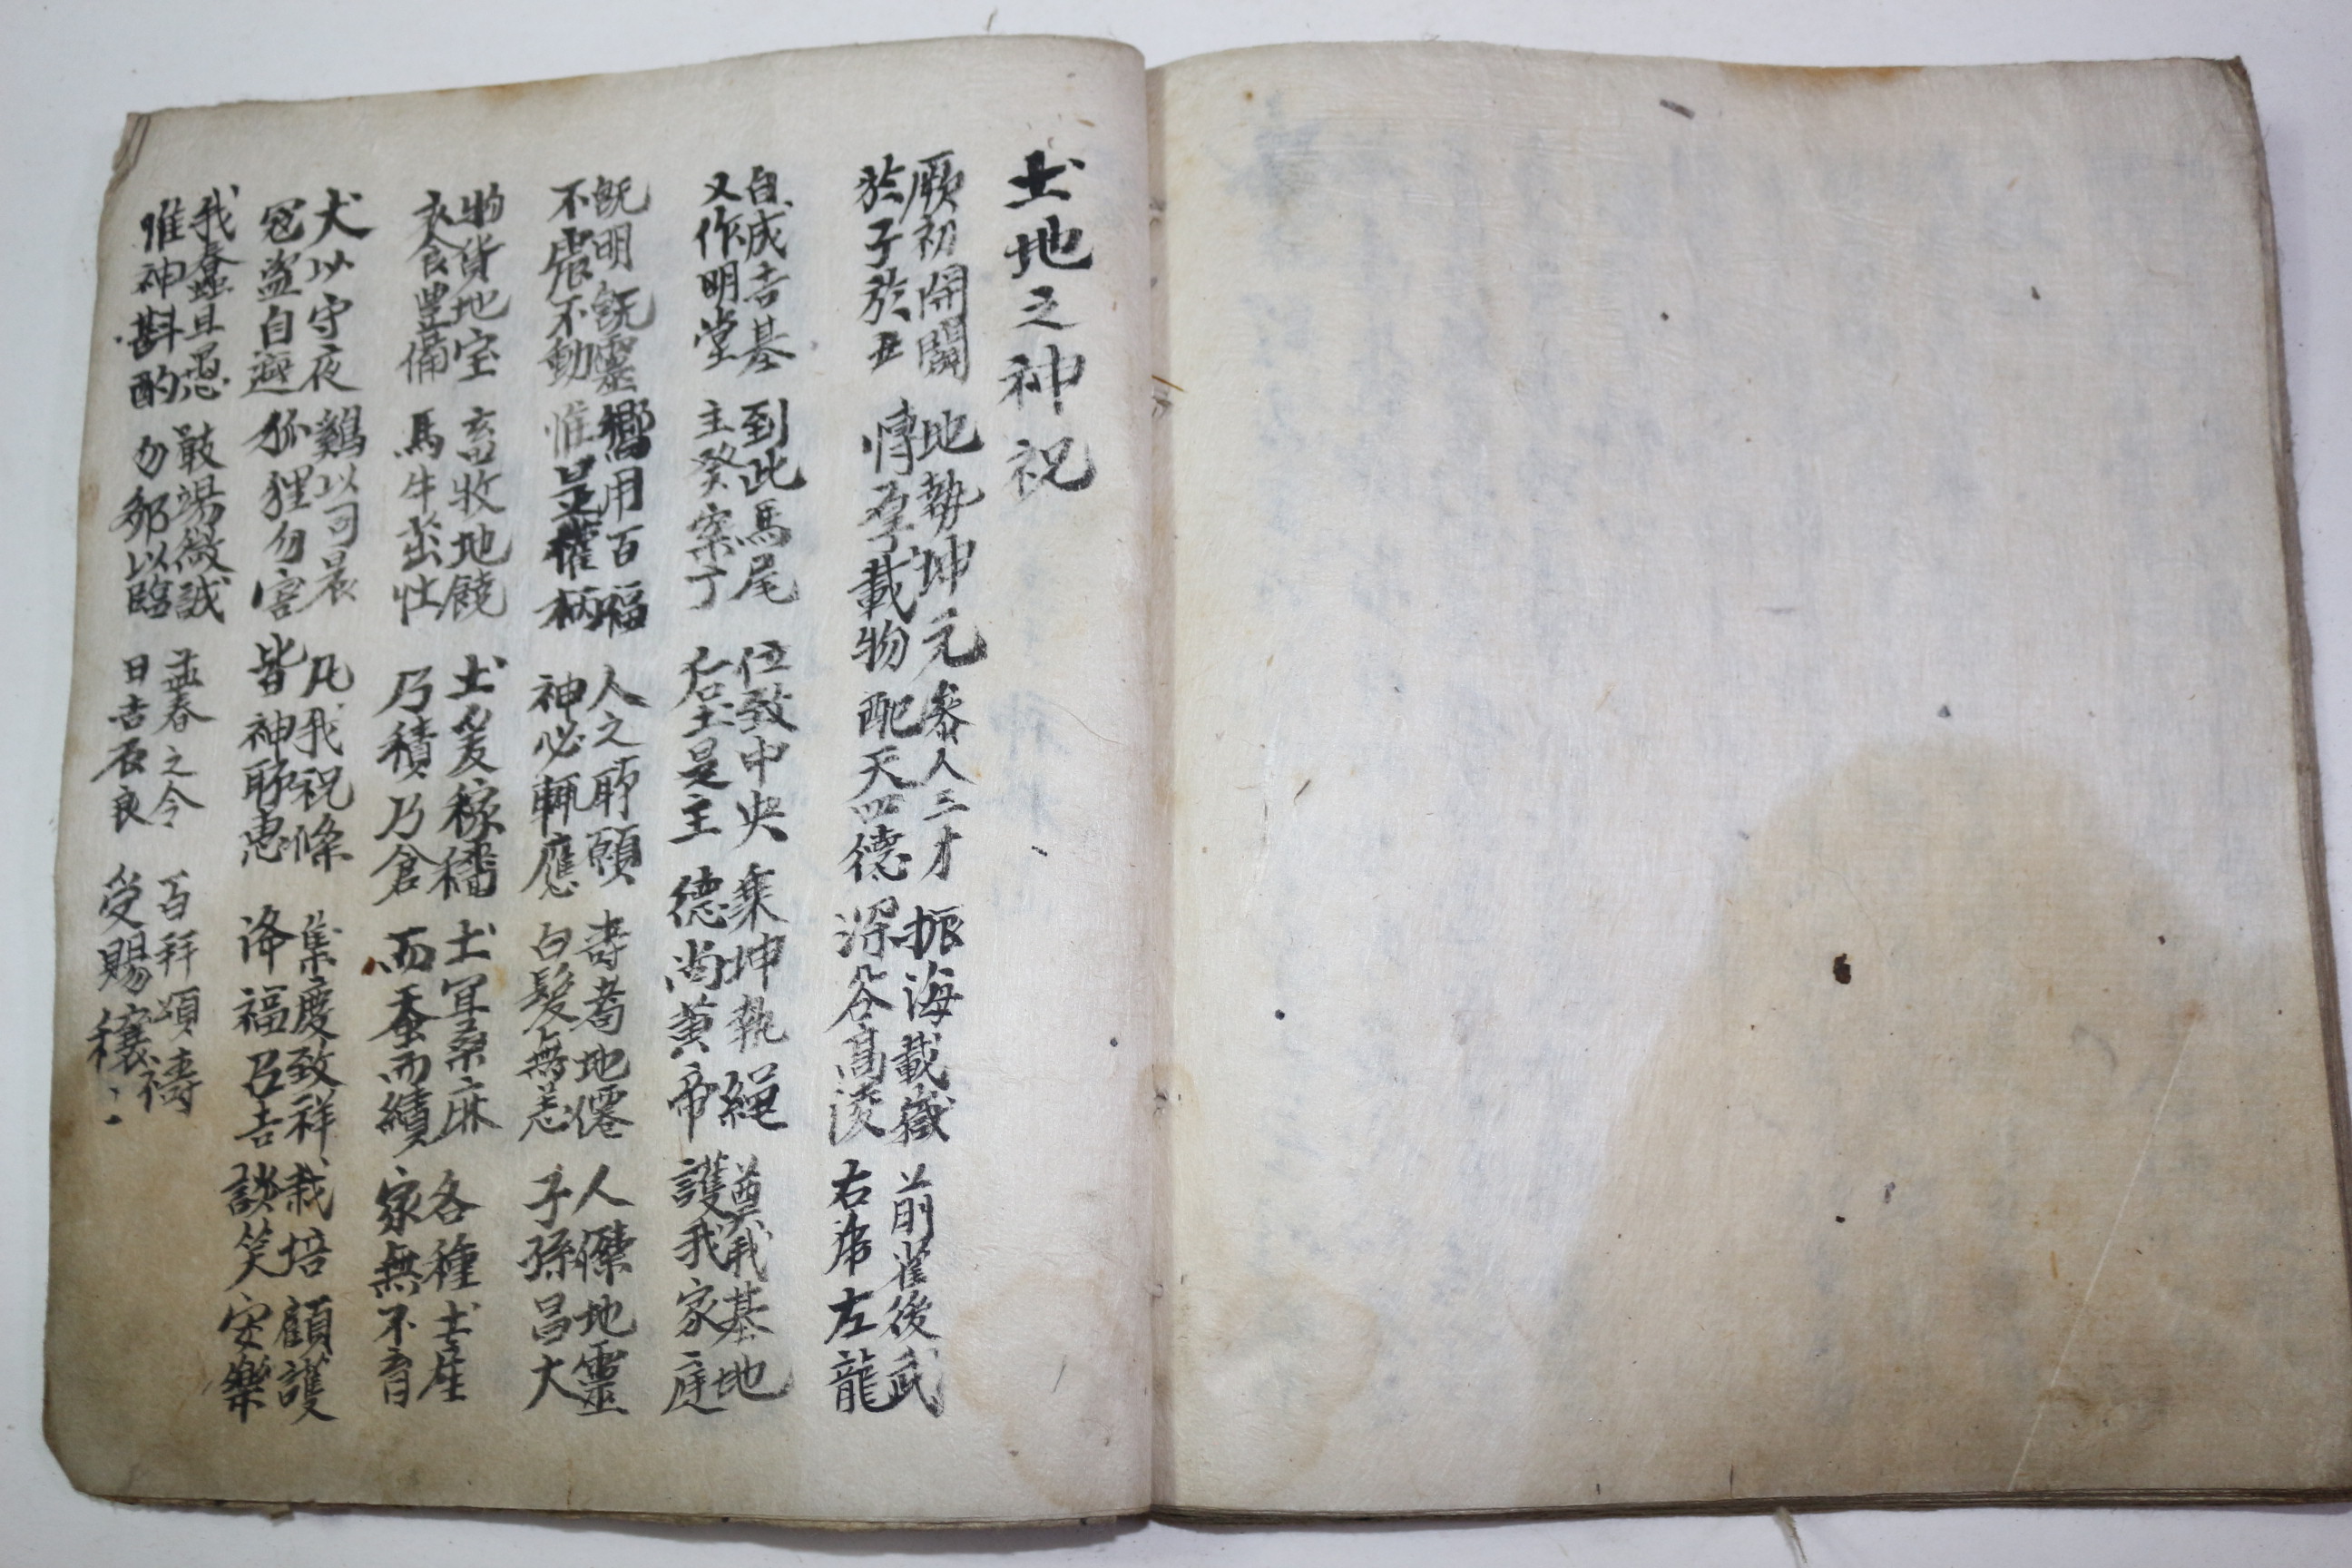 土地之神祝
厥初開闢 地勢坤元 參人三才 振海載嶽 前雀後武
於子於丑 博孕載物 配天四德 深谷高凌 右虎左龍
自成吉基 到此馬尾 位致中央 乘坤執繩 奠我基地
又作明堂 主癸案丁 后土是主 德尚黃帝 護我家庭
旣明旣靈 嚮用百福 人之所願 壽耇地僊 人傑地靈
不震不動 惟是權柄 神必輒應 白髮無恙 子孫昌大
物貨地宝 畜牧地饒 土爰稼穡 土宜桑麻 各種土産
衣食豊備 馬牛茁壯 乃積乃倉 而蚕而績 家無不育
犬以守夜 鷄以司晨 凡我祝條 集慶致祥 栽培顧護
冦盜自避 狐狸勿害 皆神所惠 降福召吉 談笑安樂
我蠢且愚 敢竭微誠 孟春之今 百拜頌禱
惟神斟酌 勿鄙以臨 日吉辰良 受賜穰〻